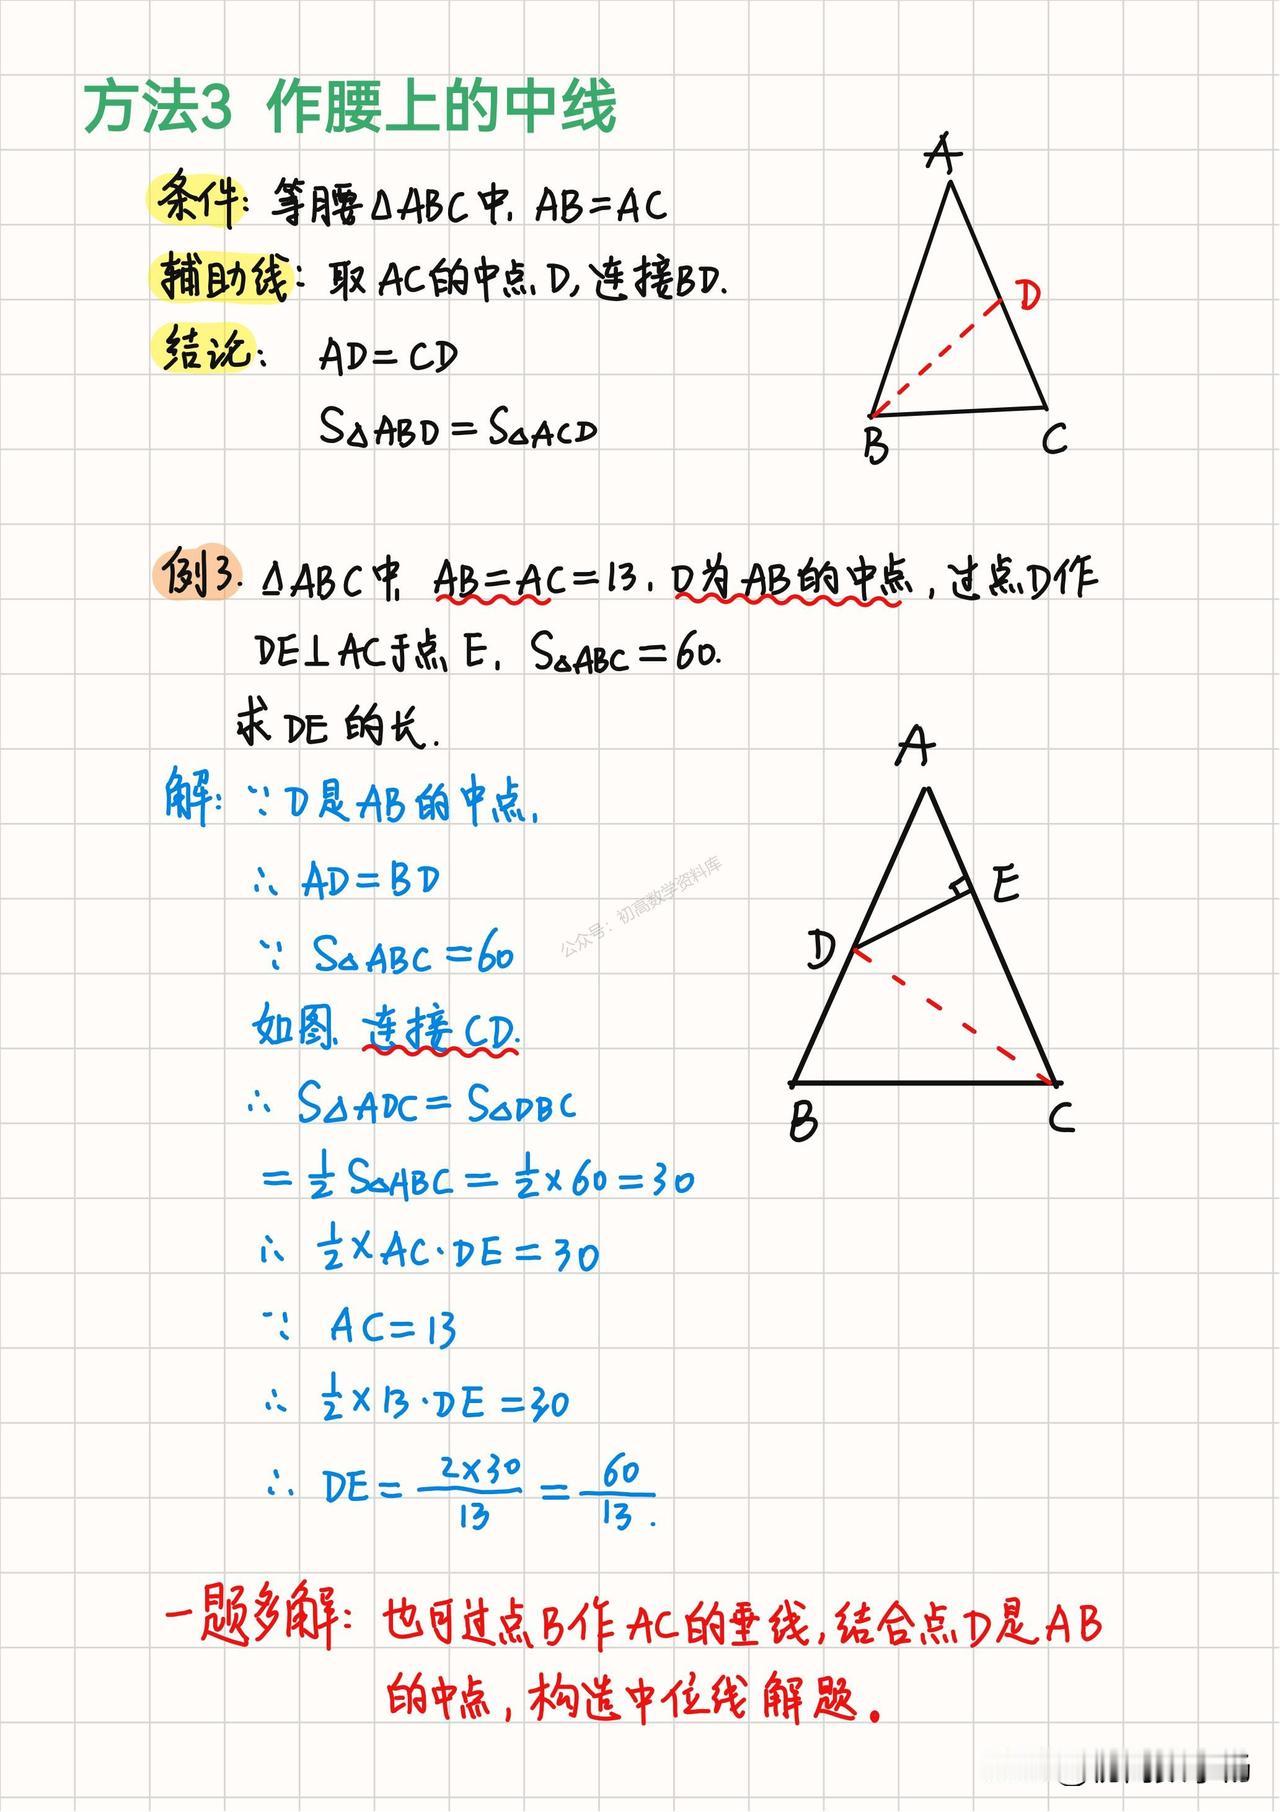 方法3 作腰上的中线
A
条件: 等腰△ABC中, AB=AC
辅助线: 取AC的中点D, 连接BD.
D
结论: AD=CD
S△ABD=S△ACD
B
C
例3. △ABC中, AB=AC=13, D为AB的中点, 过点D作
DE⊥AC于点E, S△ABC=60.
求DE的长.
A
解: ∵D是AB的中点,
∴ AD=BD
E
公众号: 初高数学资料库
D
∵ S△ABC=60
如图, 连接CD.
∴ S△ADC=S△DBC
B
C
=1/2 S△ABC=1/2×60=30
∴ 1/2×AC·DE=30
∵ AC=13
∴ 1/2×13·DE=30
∴ DE=2×30/13=60/13.
一题多解: 也可过点B作AC的垂线, 结合点D是AB
的中点, 构造中位线解题。